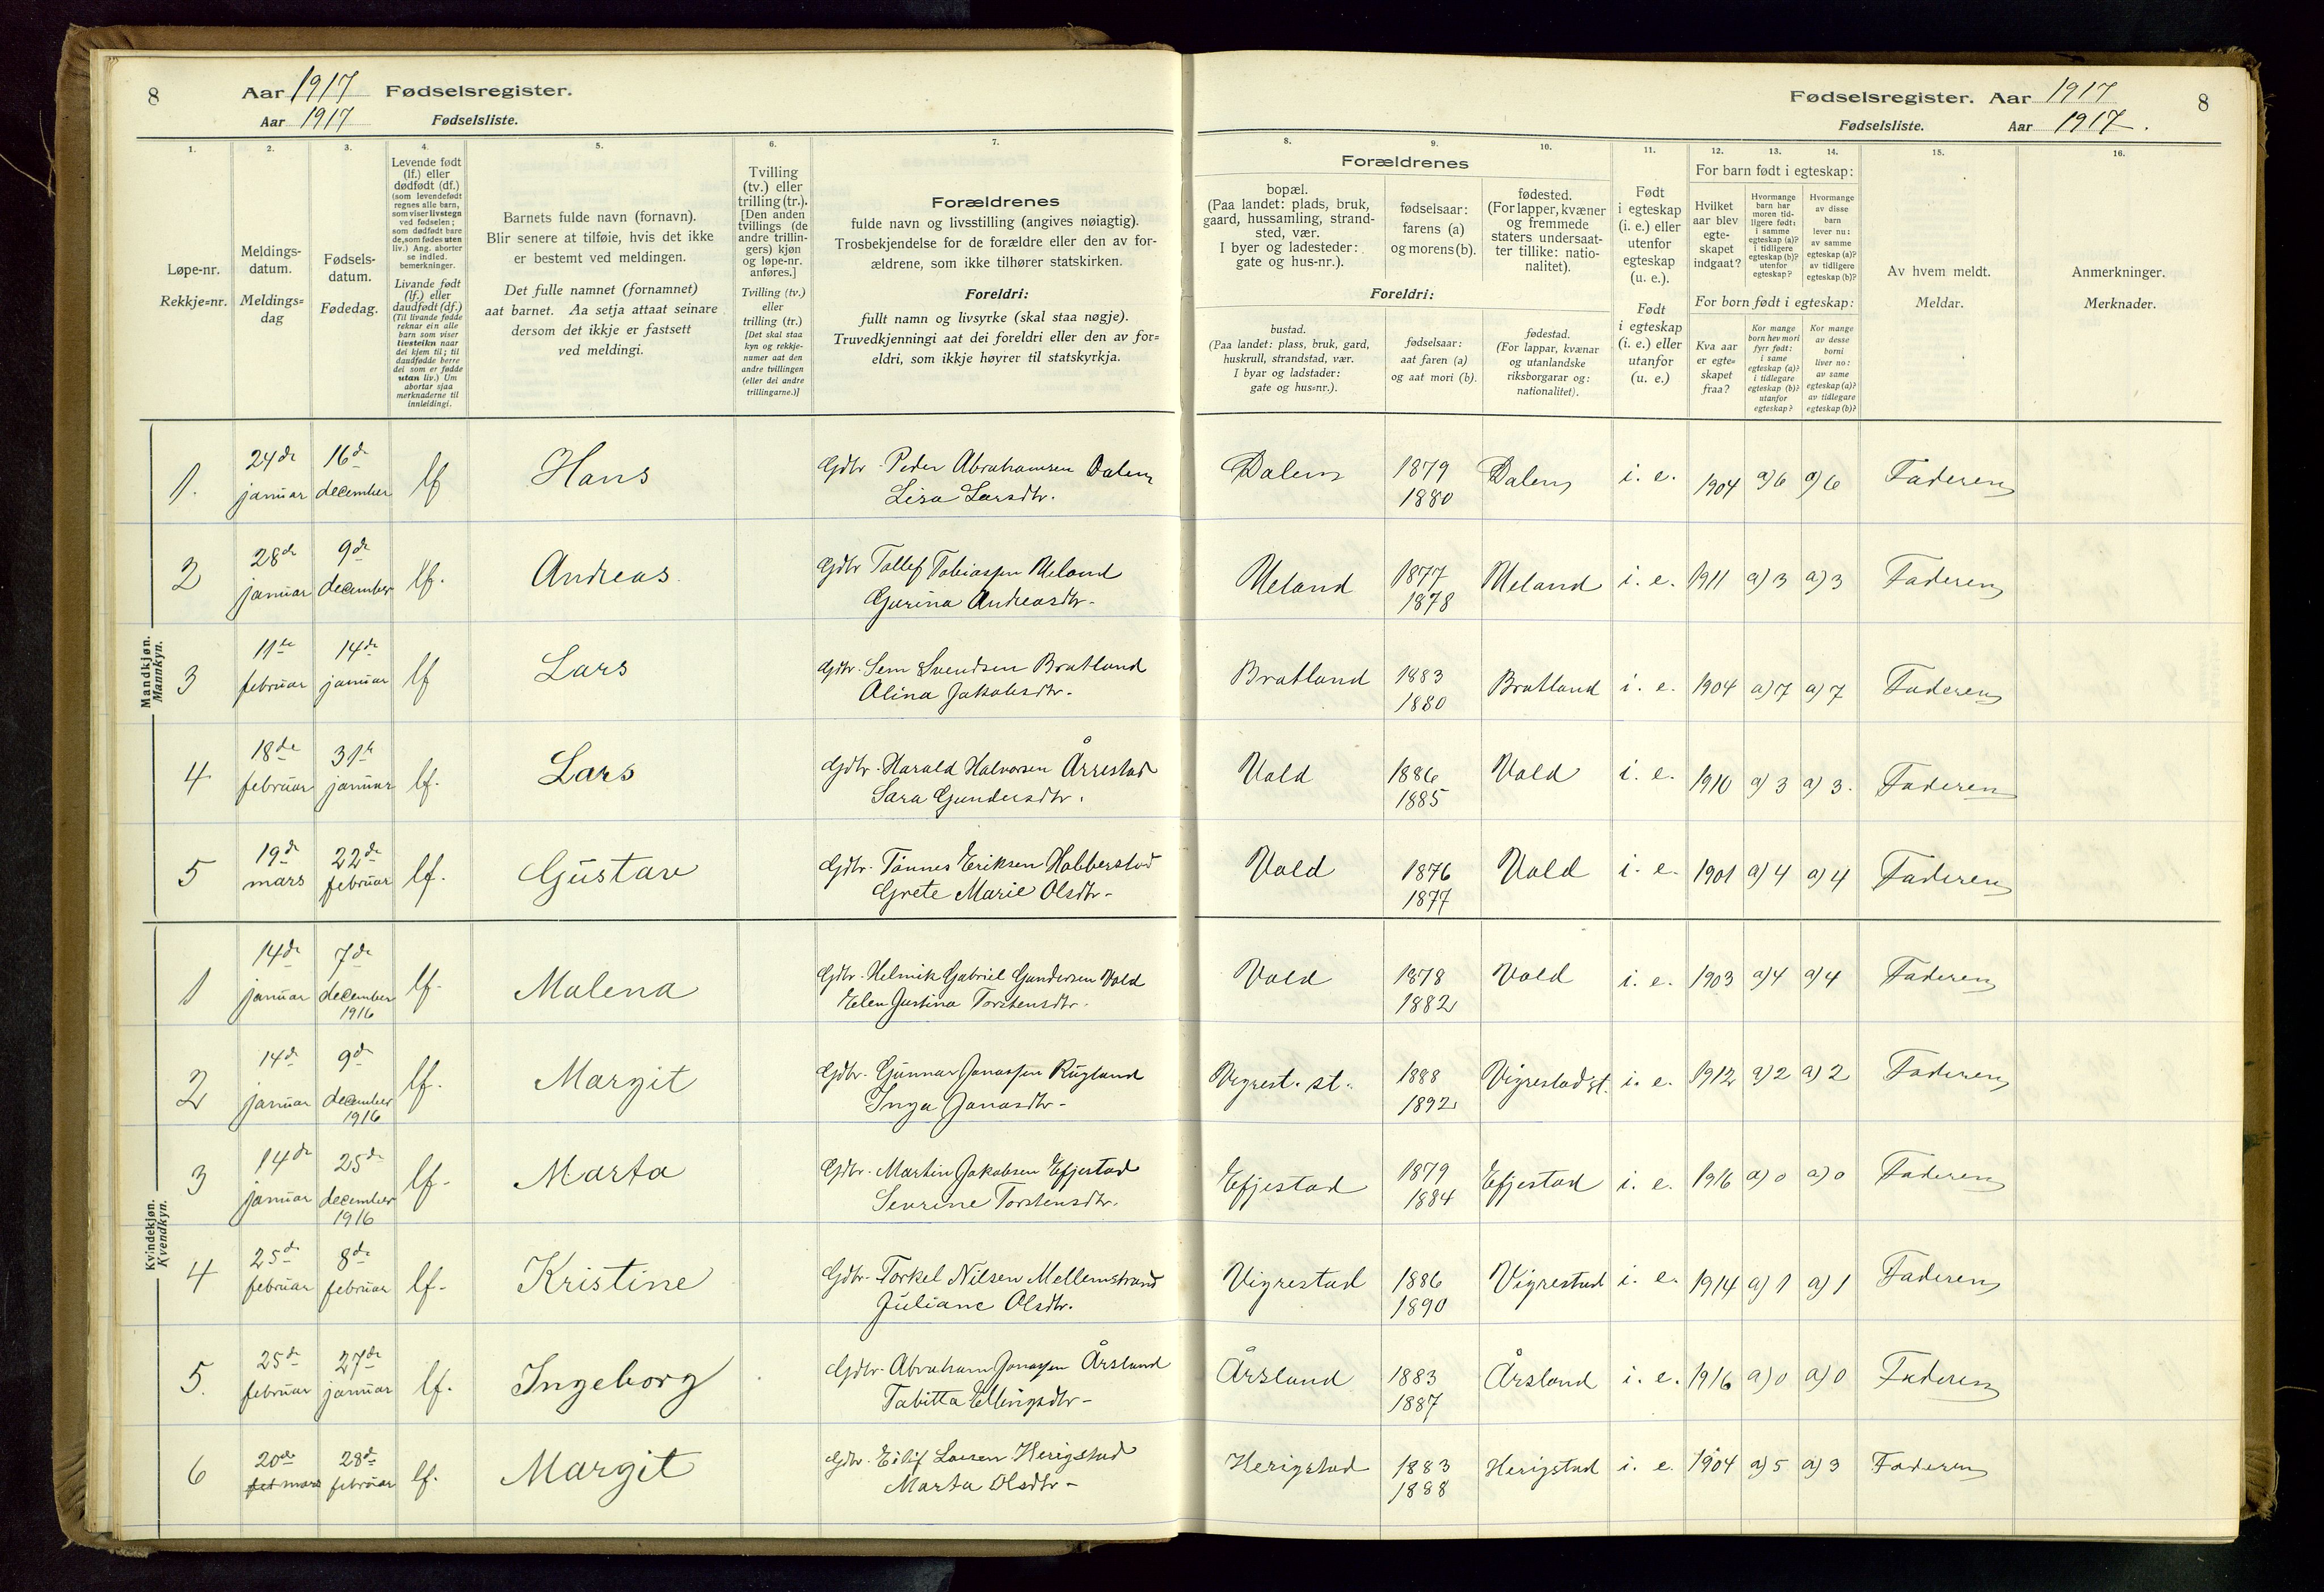 8 Aar 1917 Fødselsregister.
Aar 1917 Fødselsliste.
Fødselsregister. Aar 1917 8
Fødselsliste. Aar 1917.
1.
Løpe-nr.
Rekkje-nr.
2.
Meldings-
datum.
Meldings-
dag
3.
Fødsels-
datum.
Fødedag.
4.
Levende født
(lf.) eller
dødfødt (df.)
(som levendefødt
regnes alle barn,
som viser livstegn
ved fødselen;
som dødfødt bare
de, som fødes uten
liv.) Ang. aborter
se indled.
bemerkninger.
Livande født
(lf.) eller
daudfødt (df.)
(Til livande fødde
reknar ein alle
barn som viser
livsteikn naar
dei kjem til; til
daudfødde berre
dei som er fødde
utan liv.) Um
abortar sjaa
merknaderne til
innleidingi.
5.
Barnets fulde navn (fornavn).
Blir senere at tilføie, hvis det ikke
er bestemt ved meldingen.
Det fulle namnet (fornamnet)
aat barnet. Aa setja attaat seinare
dersom det ikkje er fastsett
ved meldingi.
6.
Tvilling
(tv.) eller
trilling (tr.).
[Den anden
tvillings (de
andre trillin-
gers) kjøn
og løpe-nr.
anføres.]
Tvilling (tv.)
eller
trilling (tr.)
[Det skal staa
kyn og rekkje-
numer aat den
andre tvillingen
(eller dei andre
trillingarne.)]
7.
Forældrenes
fulde navn og livsstilling (angives nøiagtig).
Trosbekjendelse for de forældre eller den av for-
ældrene, som ikke tilhører statskirken.
Foreldri:
fullt namn og livsyrke (skal staa nøgje).
Truvedkjenningi aat dei foreldri eller den av for-
eldri, som ikkje høyrer til statskyrkja.
8. 9. 10.
Forældrenes
bopæl.
(Paa landet: plads, bruk,
gaard, hussamling, strand-
sted, vær.
I byer og ladesteder:
gate og hus-nr.).
fødselsaar:
farens (a)
og morens (b).
fødested.
(For lapper, kvæner
og fremmede
staters undersaat-
ter tillike: natio-
nalitet).
Foreldri:
bustad.
(Paa landet: plass, bruk, gard,
huskrull, strandstad, vær.
I byar og ladstader:
gate og hus-nr.).
fødselsaar:
aat faren (a)
og aat mori (b).
fødestad.
(For lappar, kvænar
og utanlandske
riksborgarar og:
nationalitet).
11.
Født
i egteskap
(i. e.) eller
utenfor
egteskap
(u. e.).
Født
i egteskap
(i. e.) eller
utanfor
(u. e.)
12. 13. 14.
For barn født i egteskap:
Hvilket
aar blev
egte-
skapet
indgaat?
Hvormange
barn har
moren tid-
ligere født:
i samme
egteskap (a)?
i tidligere
egteskap (b)?
utenfor
egteskap?
Hvormange
av disse
barn
lever nu:
av samme
egteskap (a)?
av tidligere
egteskap (b)?
For born født i egteskap:
Kva aar
er egte-
skapet
fraa?
Kor mange
born hev mori
fyrr født:
i same
egteskap (a)?
i tidlegare
egteskap (b)?
utanfor
egteskap?
Kor mange
av desse
borni
liver no:
av same
egteskap (a)?
av tidlegare
egteskap (b)?
15.
Av hvem meldt.
Meldar.
16.
Anmerkninger.
Merknader.
Mandkjøn.
Mannkyn.
1. 24de januar 16de december lf Hans Gdbr. Peder Abrahamsen Dalen Dalen 1879 Dalen i. e. 1904 a) 6 a) 6 Faderen
Lisa Larsdtr. 1880
2 28de januar 9de december lf. Andreas Gdbr Tollef Tobiassen Meland Meland 1877 Meland i. e. 1911 a) 3 a) 3 Faderen
Gurina Andreasdtr- 1878
3 11te februar 14de januar lf Lars Gdbr. Sem Svendsen Bratland Bratland 1883 Bratland i. e. 1904 a) 7 a) 7 Faderen
Alina Jakobsdtr. 1880
4 18de februar 31te januar lf. Lars Gdbr. Harald Halvorsen Årrestad Vold 1886 Vold i. e. 1910 a) 3 a) 3. Faderen
Sara Gundersdtr. 1885
5 19de mars 22de februar lf. Gustav Gdbr. Tønnes Eriksen Hobberstad Vold 1876 Vold i. e. 1901 a) 4 a) 4 Faderen
Grete Marie Olsdtr- 1877
Kvindekjøn.
Kvendkyn.
1 14de januar 7de december 1916 lf. Malena Gdbr. Helmik Gabriel Gundersen Vold Vold 1878 Vold i. e. 1903 a) 4 a) 4 Faderen
Elen Justina Torstensdtr. 1882
2 14de januar 9de december 1916 lf. Margit Gdbr. Gunnar Jonassen Rugland Vigrest. st. 1888 Vigrestad st. i. e. 1912 a) 2 a) 2 Faderen
Inga Jonasdtr- 1892
3 14de januar 25de december 1916 lf- Marta Gdbr. Martin Jakobsen Efjestad Efjestad 1879 Efjestad i. e. 1916 a) 0 a) 0 Faderen
Sevrine Torstensdtr. 1884
4 25de februar 8de februar lf- Kristine Gdbr. Torkel Nilsen Mellemstrand Vigrestad 1886 Vigrestad i. e. 1914 a) 1 a) 1 Faderen
Juliane Olsdtr. 1890
5. 25de februar 27de januar lf. Ingeborg Gdbr. Abraham Jonassen Årsland Årsland 1883 Årsland i. e. 1916 a) 0 a) 0 Faderen
Tabitta Ellingsdtr- 1887
6 20de mars 28de februar lf. Margit Gdbr. Eilif Larsen Herigstad Herigstad 1883 Herigstad i. e. 1904 a) 5 a) 3 Faderen
Marta Olsdtr- 1888